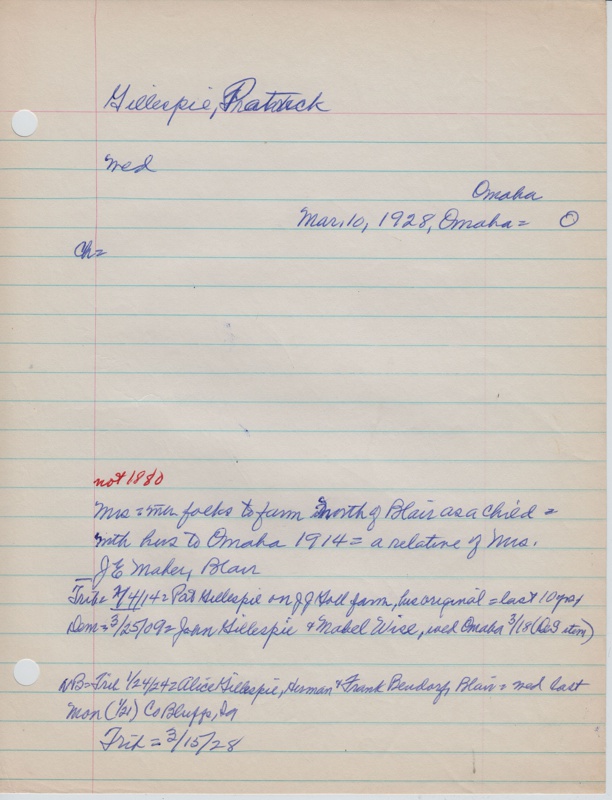 Gillespie, Patrick
wed
Omaha
Mar. 10, 1928, Omaha = O
Ch =
not 1880
Mrs = folks to farm North of Blair as a child =
mth hus to Omaha 1914 = a relative of Mrs.
J E Maher, Blair
Trib = 4/14 = Pat Gillespie on J J farm, = last 10 yrs
Dem = 3/25/09 = John Gillespie & Mabel Wise, wed Omaha 3/18
NB = Trib 1/24/24 = Alice Gillespie, Herman & Frank Bendorf, Blair = wed last
Mon (1/21) Co Bluffs, Ia
Trib = 3/15/28